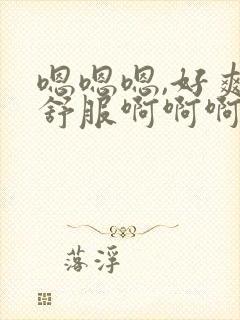 嗯嗯嗯,好爽
舒服啊啊啊
落浮